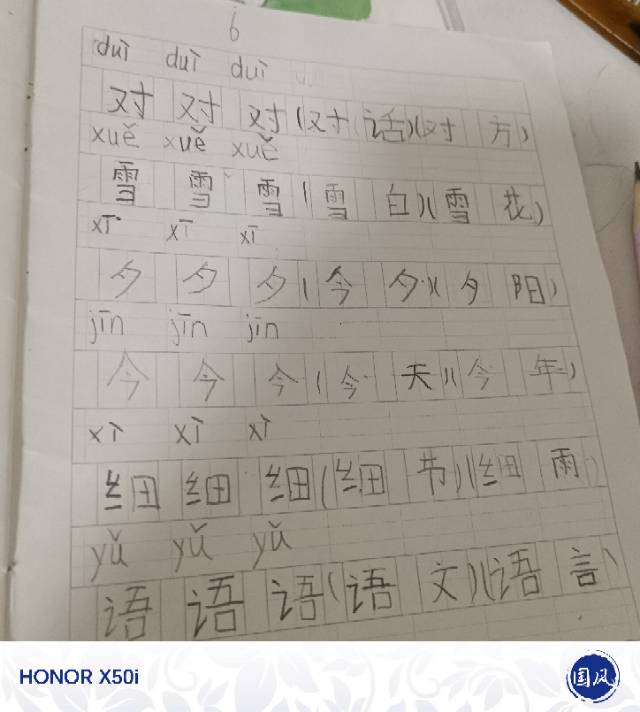 6
duì duì duì
对 对 对(对话)(对方)
xuě xuě xuě
雪 雪 雪(雪白)(雪花)
xī xī xī
夕 夕 夕(今夕)(夕阳)
jīn jīn jīn
今 今 今(今天)(今年)
xì xì xì
细 细 细(细节)(细雨)
yǔ yǔ yǔ
语 语 语(语文)(语言)
HONOR X50i
国风